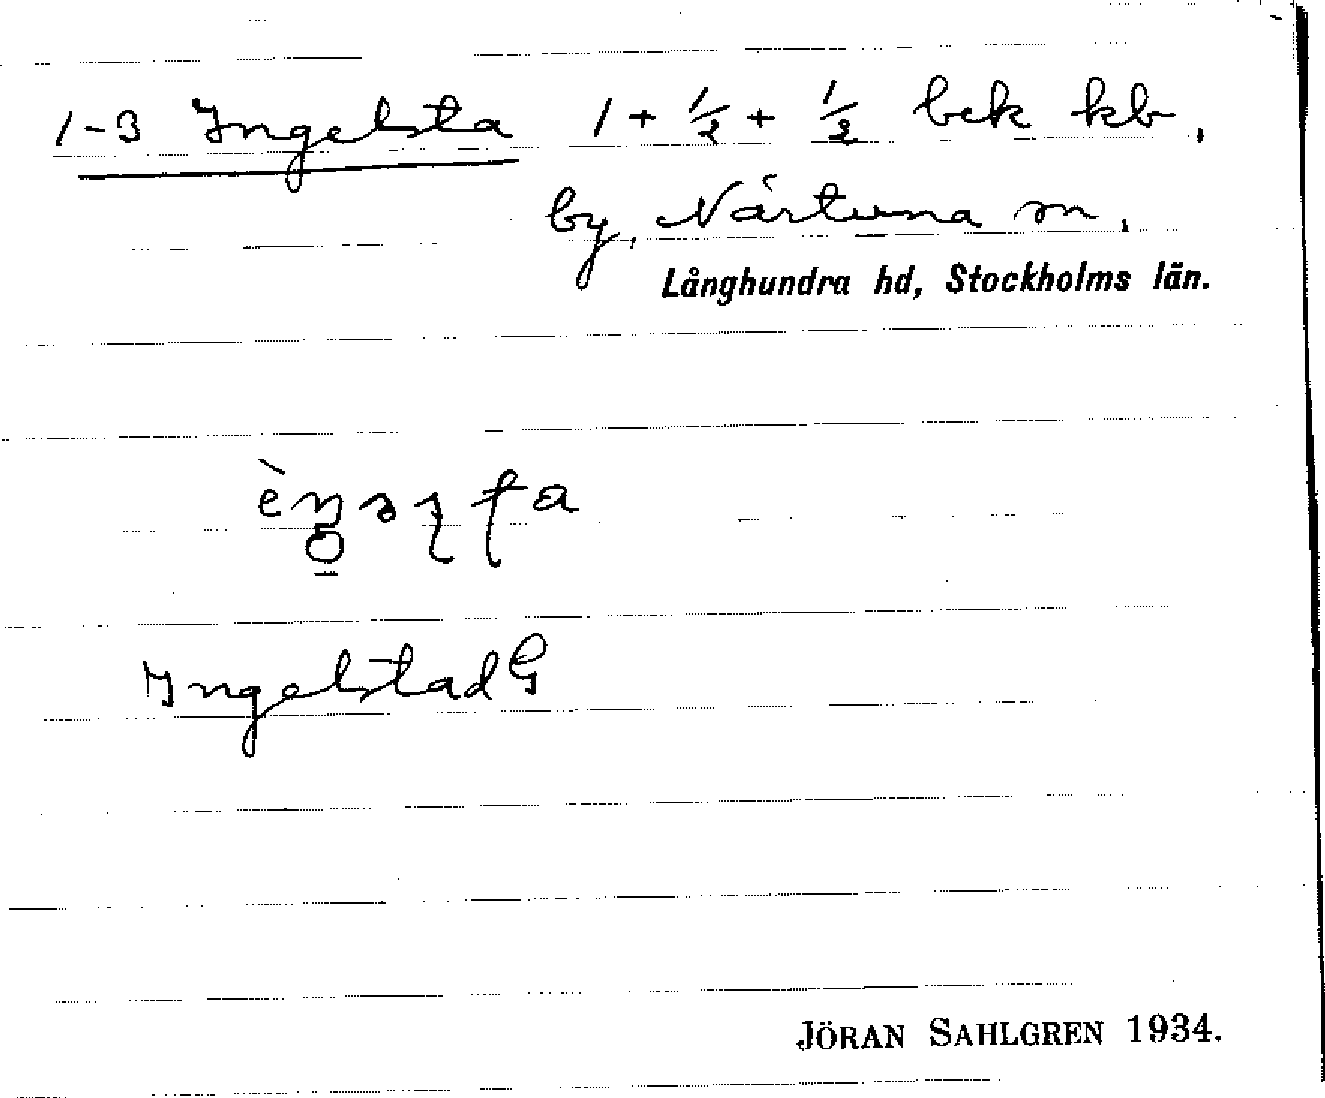 1-3 Ingelsta 1 + 1/2 + 1/2 bek kb,
by, Närtuna sn,
Långhundra hd, Stockholms län.
Ingelstad G
JÖRAN SAHLGREN 1934.